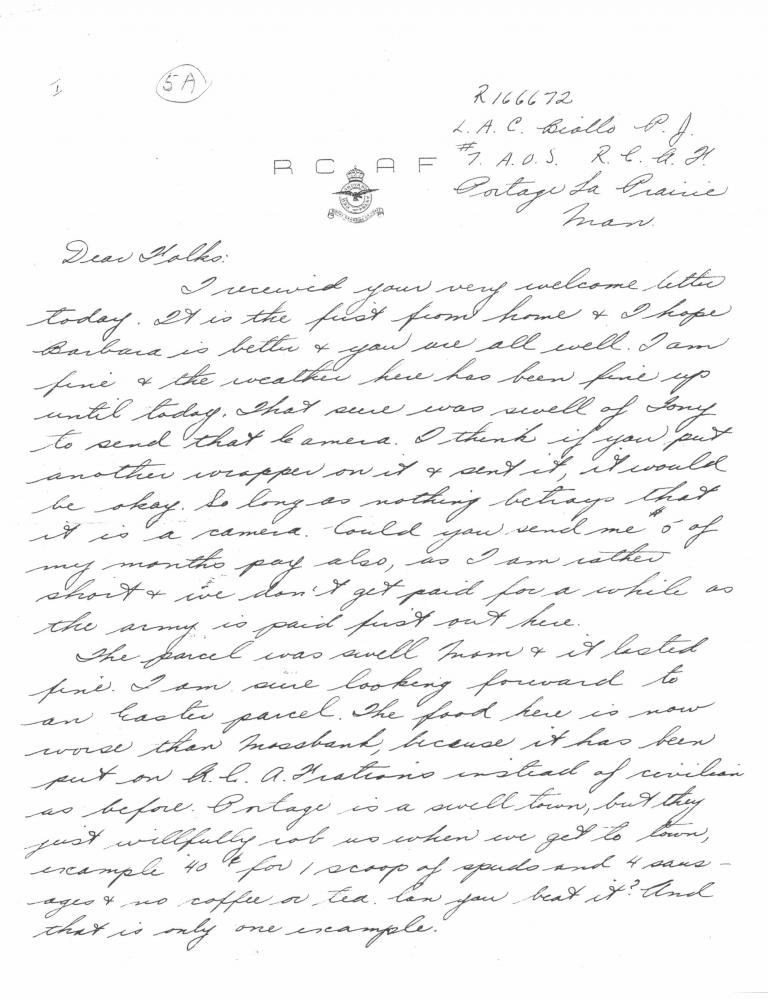 I
5A
R166672
L.A.C. Biollo P.J.
#7. A.O.S. R.C.A.F.
Portage La Prairie
Man.
R C A F
Dear Folks:
I received your very welcome letter
today. It is the first from home & I hope
Barbara is better & you are all well. I am
fine & the weather here has been fine up
until today. That sure was swell of Tony
to send that Camera. I think if you put
another wrapper on it & sent it, it would
be okay. So long as nothing betrays that
it is a camera. Could you send me $5 of
my months pay also, as I am rather
short & we don't get paid for a while as
the army is paid first out here.
The parcel was swell Mom & it lasted
fine. I am sure looking forward to
an Easter parcel. The food here is now
worse than Mossbank, because it has been
put on R.C.A.F rations instead of civilian
as before. Portage is a swell town, but they
just willfully rob us when we get to town,
example 40¢ for 1 scoop of spuds and 4 saus-
ages & no coffee or tea. Can you beat it? And
that is only one example.